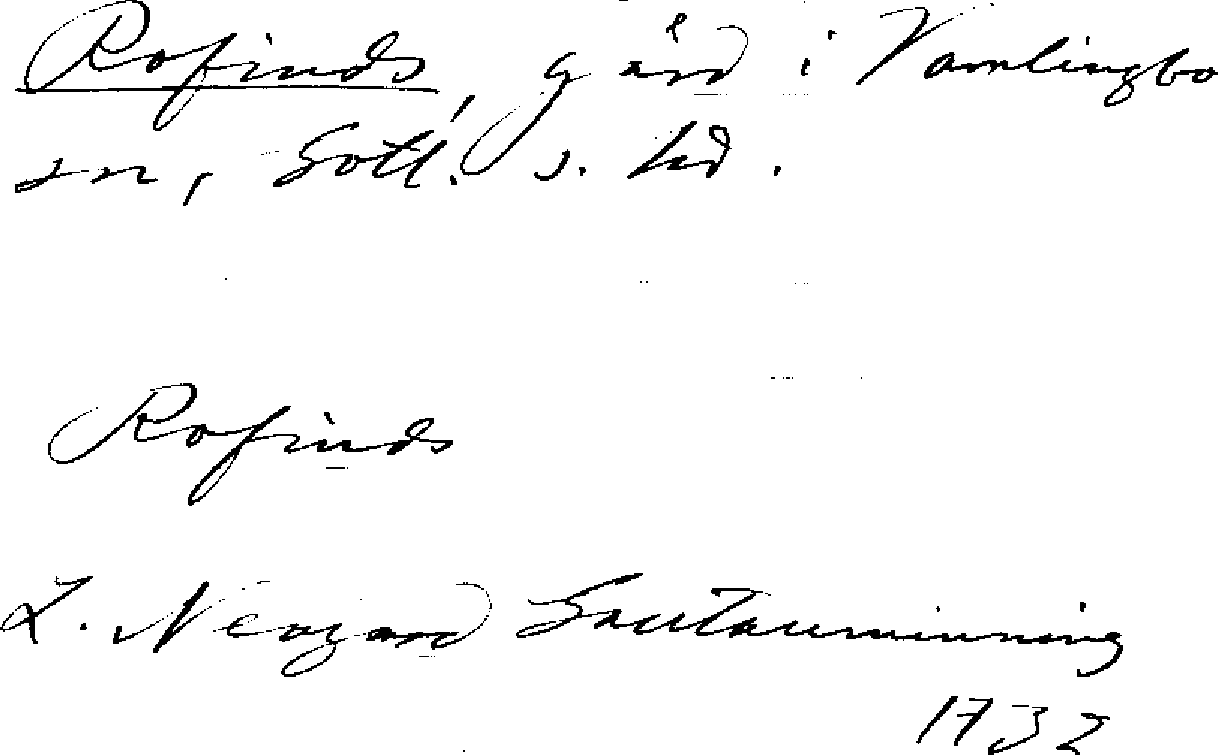 Rofinds, gård i Vamlingbo
sn, Gotl. s. hd.
Rofinds
L. Neogard Gautauminning
1732